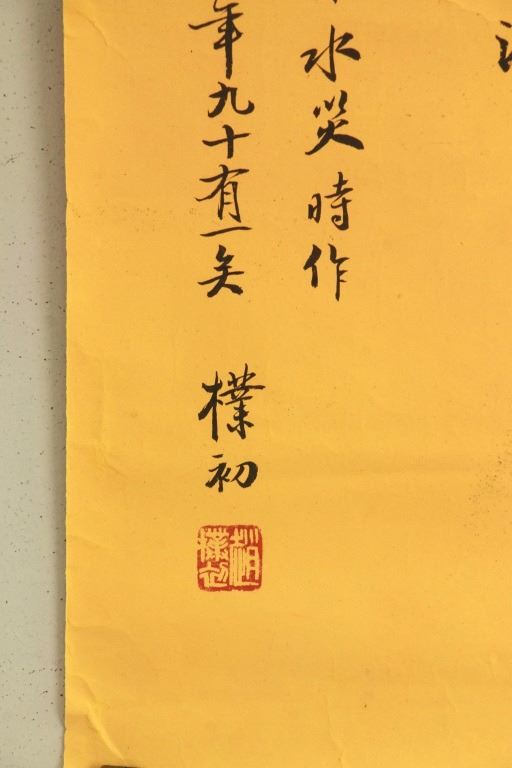 水災時作
年九十有一矣 樸初
趙樸初